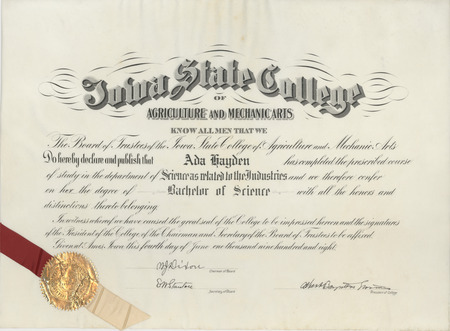 Iowa State College
OF
AGRICULTURE AND MECHANIC ARTS
KNOW ALL MEN THAT WE
The Board of Trustees of the Iowa State College of Agriculture and Mechanic Arts
Do hereby declare and publish that Ada Hayden has completed the prescribed course
of study in the department of Science as related to the Industries and we therefore confer
on her the degree of Bachelor of Science with all the honors and
distinctions thereto belonging.
In witness whereof we have caused the great seal of the College to be impressed hereon and the signatures
of the President of the College of the Chairman and Secretary of the Board of Trustees to be affixed.
Given at Ames, Iowa this fourth day of June one thousand nine hundred and eight.
Chairman of Board
EW Stanton
Secretary of Board
President of College